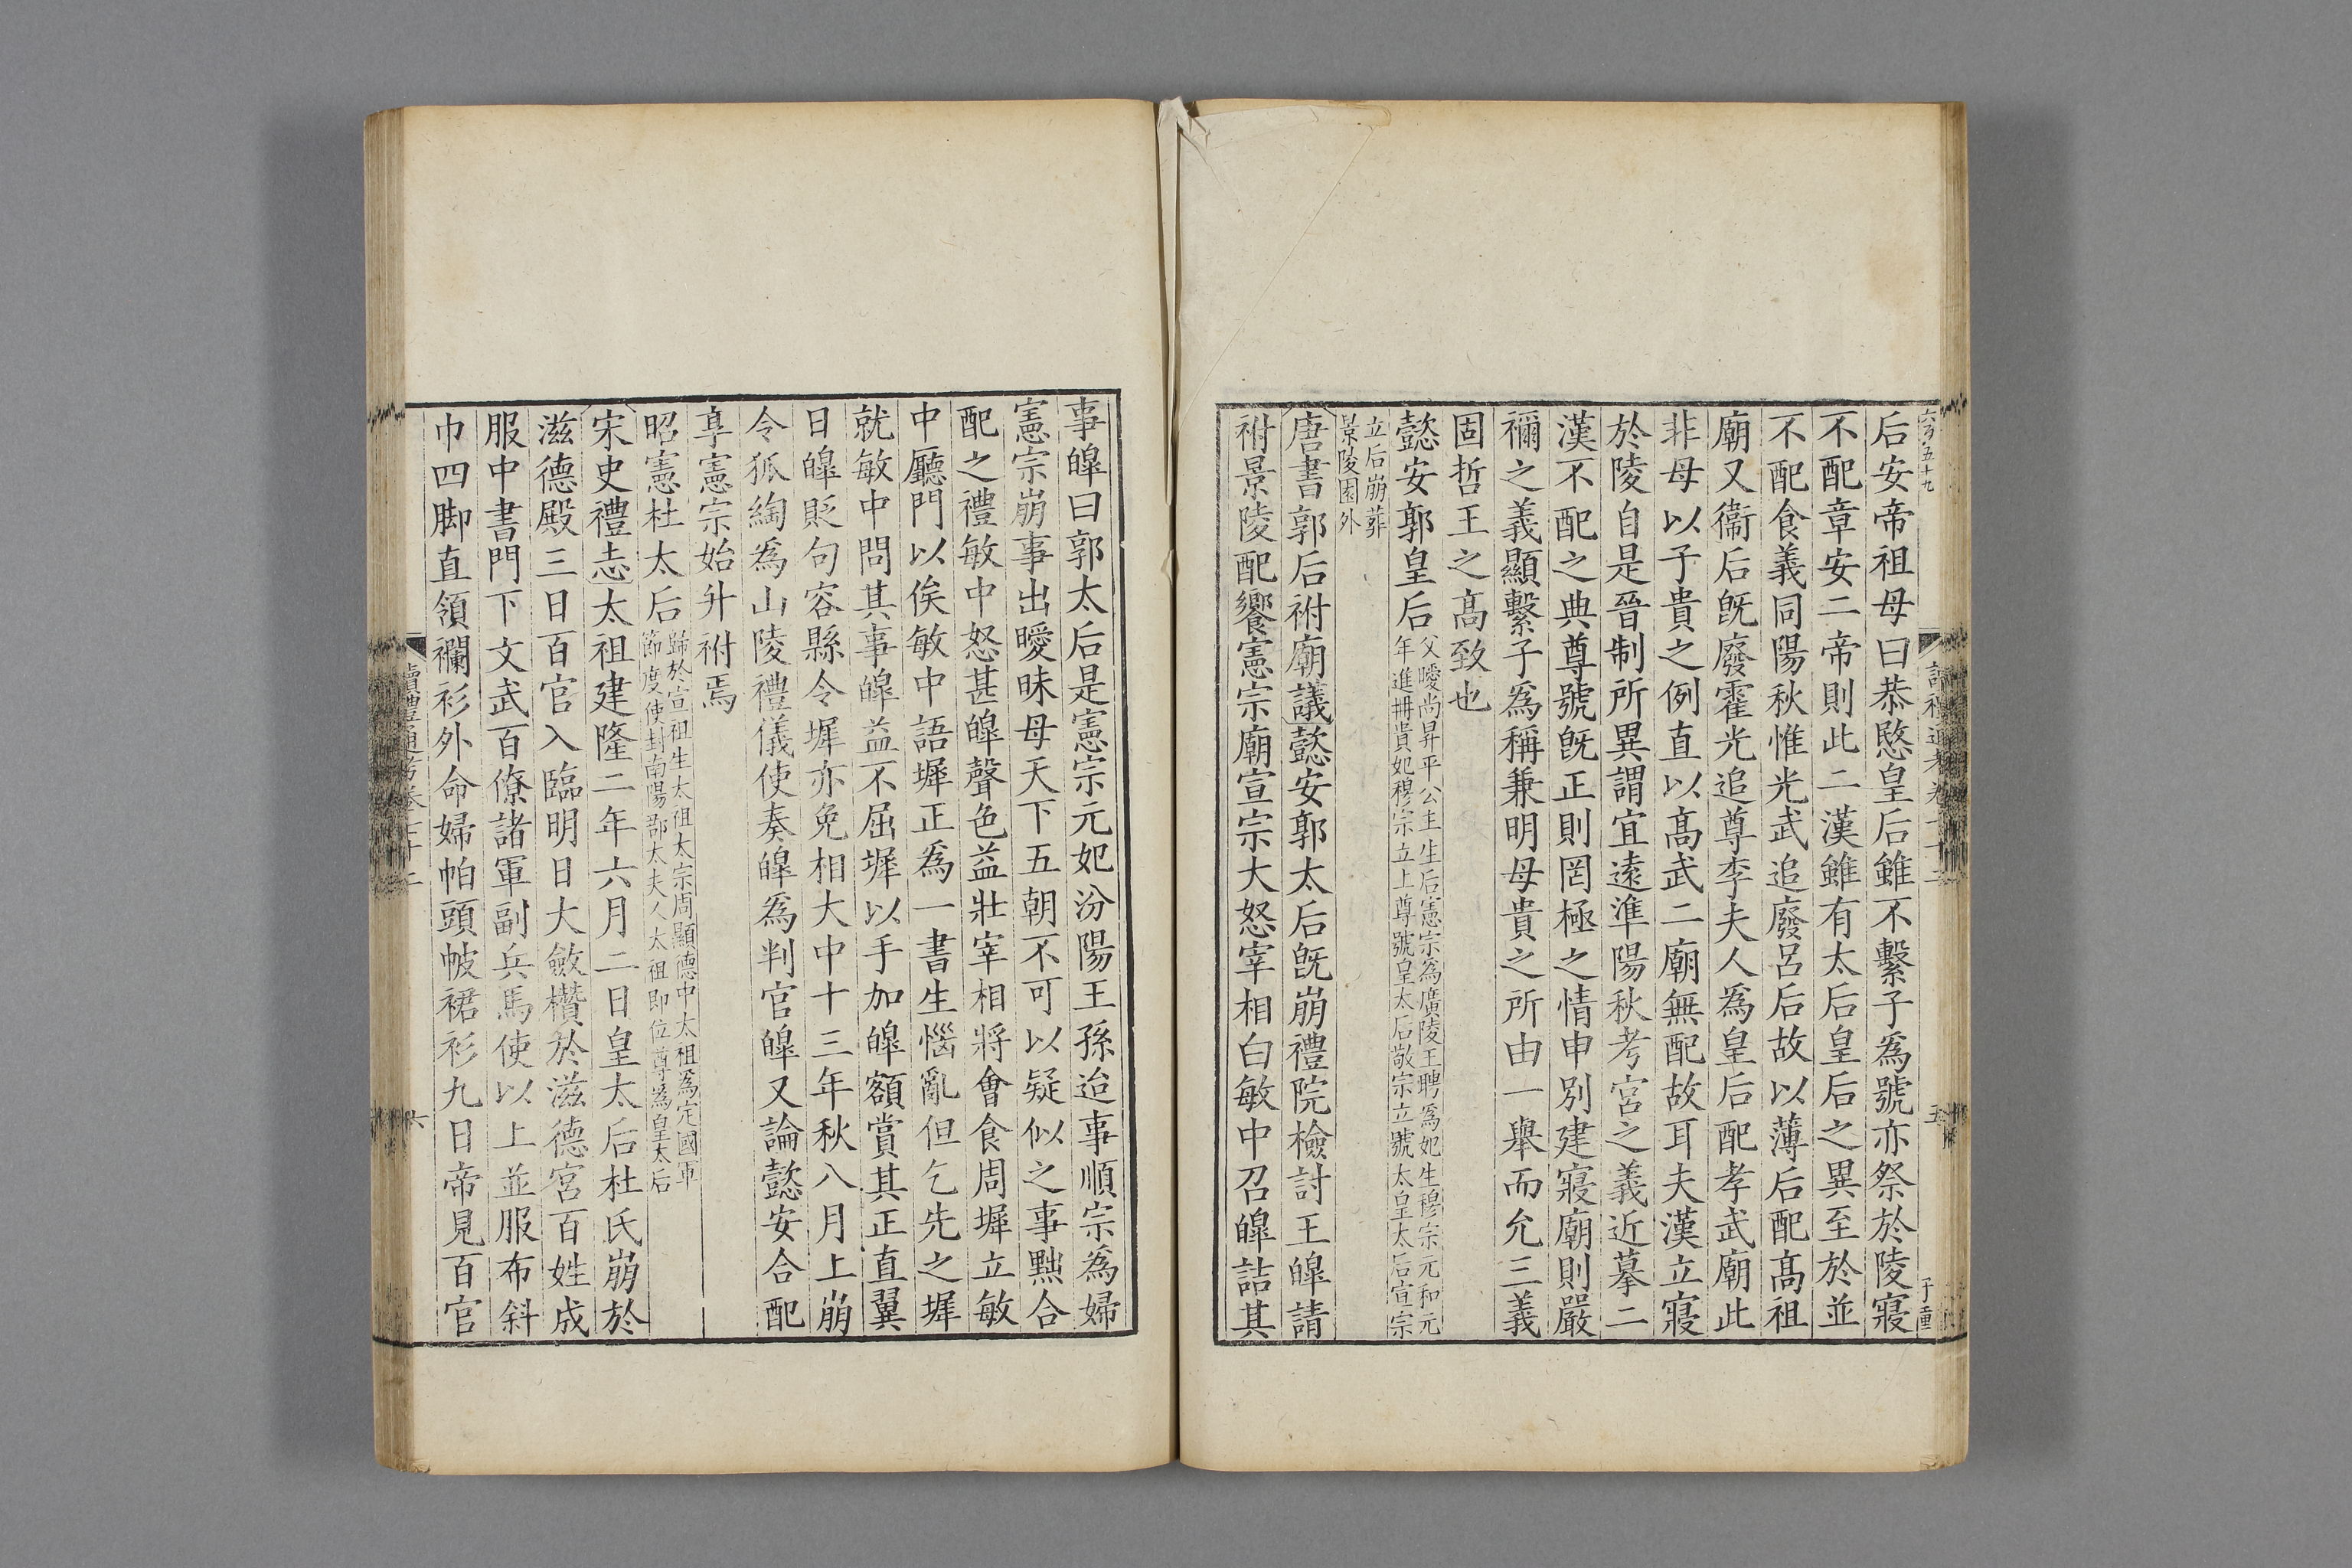 后安帝祖母曰恭愍皇后雖不繫子爲號亦祭於陵寢
不配章安二帝則此二漢雖有太后皇后之異至於並
不配食義同陽秋惟光武追廢呂后故以薄后配髙祖
廟又衞后旣廢霍光追尊李夫人爲皇后配孝武廟此
非母以子貴之例直以髙武二廟無配故耳夫漢立寢
於陵自是晉制所異謂宜遠準陽秋考宮之義近摹二
漢不配之典尊號旣正則罔極之情申別建寢廟則嚴
禰之義顯繫子爲稱兼明母貴之所由一舉而允三義
固哲王之髙致也
懿安郭皇后父曖尚昇平公主生后憲宗爲廣陵王聘爲妃生穆宗元和元
年進冊貴妃穆宗立上尊號皇太后敬宗立號太皇太后宣宗
立后崩葬
景陵園外
唐書郭后祔廟議懿安郭太后旣崩禮院檢討王皥請
祔景陵配饗憲宗廟宣宗大怒宰相白敏中召皥詰其
事皥曰郭太后是憲宗元妃汾陽王孫迨事順宗爲婦
憲宗崩事出曖昧母天下五朝不可以疑似之事黜合
配之禮敏中怒甚皥聲色益壯宰相將會食周墀立敏
中廳門以俟敏中語墀正爲一書生惱亂但乞先之墀
就敏中問其事皥益不屈墀以手加皥額賞其正直翼
日皥貶句容縣令墀亦免相大中十三年秋八月上崩
令狐綯爲山陵禮儀使奏皥爲判官皥又論懿安合配
享憲宗始升祔焉
昭憲杜太后歸於宣祖生太祖太宗周顯德中太祖爲定國軍
節度使封南陽郡太夫人太祖即位尊爲皇太后
宋史禮志太祖建隆二年六月二日皇太后杜氏崩於
滋德殿三日百官入臨明日大斂欑於滋德宮百姓成
服中書門下文武百僚諸軍副兵馬使以上並服布斜
巾四脚直領襴衫外命婦帕頭帔裙衫九日帝見百官
讀禮通考卷二十二
六
五